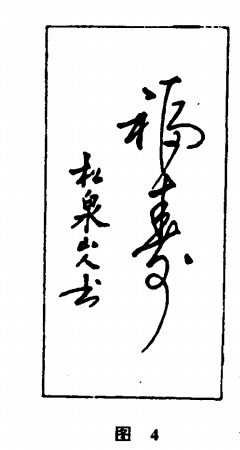 福寿
松泉山人书
图 4